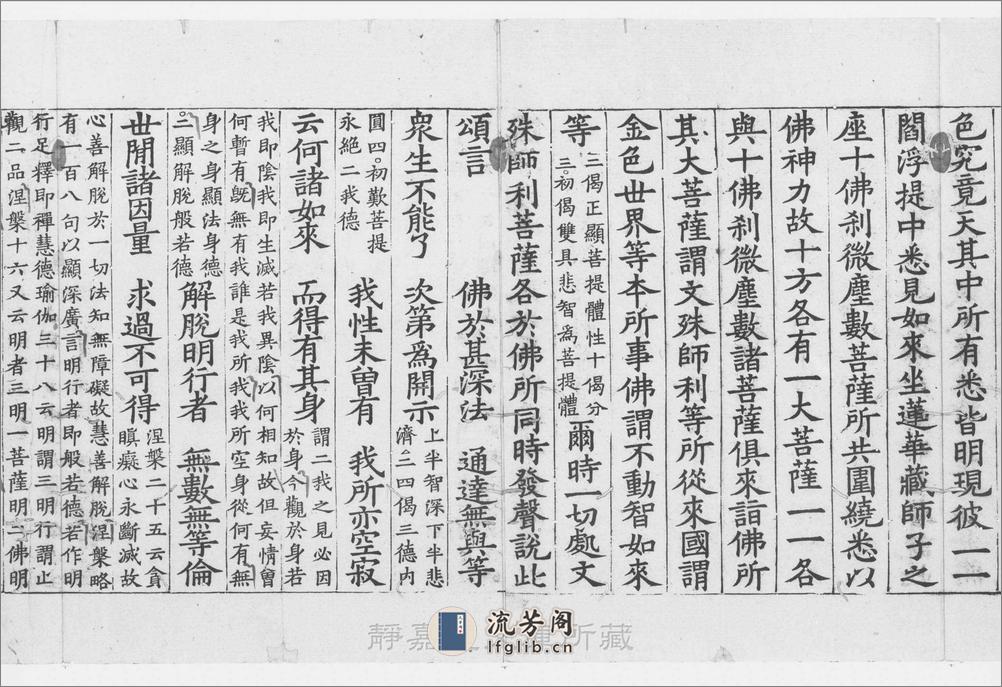 色究竟天其中所有悉皆明現彼一一
閻浮提中悉見如來坐蓮華藏師子之
座十佛刹微塵數菩薩所共圍繞悉以
佛神力故十方各有一大菩薩一一各
與十佛刹微塵數諸菩薩俱來詣佛所
其大菩薩謂文殊師利等所從來國謂
金色世界等本所事佛謂不動智如來
等三偈正顯菩提體性十偈分三。初偈雙具悲智爲菩提體爾時一切處文
殊師利菩薩各於佛所同時發聲說此
頌言 佛於甚深法 通達無與等
衆生不能了 次第爲開示上半智深下半悲濟。二四偈三德內
圓四。初歎菩提永絕二我德 我性未曽有 我所亦空寂
云何諸如來 而得有其身謂二我之見必因於身今觀於身若
我即陰我即生滅若我異陰以何相知故但妄情曽
何暫有旣無有我誰是我所我我所空身從何有無
身之身顯法身德。二顯解脫般若德 解脫明行者 無數無等倫
世閒諸因量 求過不可得涅槃二十五云貪瞋癡心永斷滅故
心善解脫於一切法知無障礙故慧善解脫涅槃略
有一百八句以顯深廣言明行者即般若德若作明
行足釋即禪慧德瑜伽三十八云明謂三明行謂止
觀二品涅槃十六又云明者三明一菩薩明二佛明
靜嘉 所藏
流芳阁
lfglib.cn